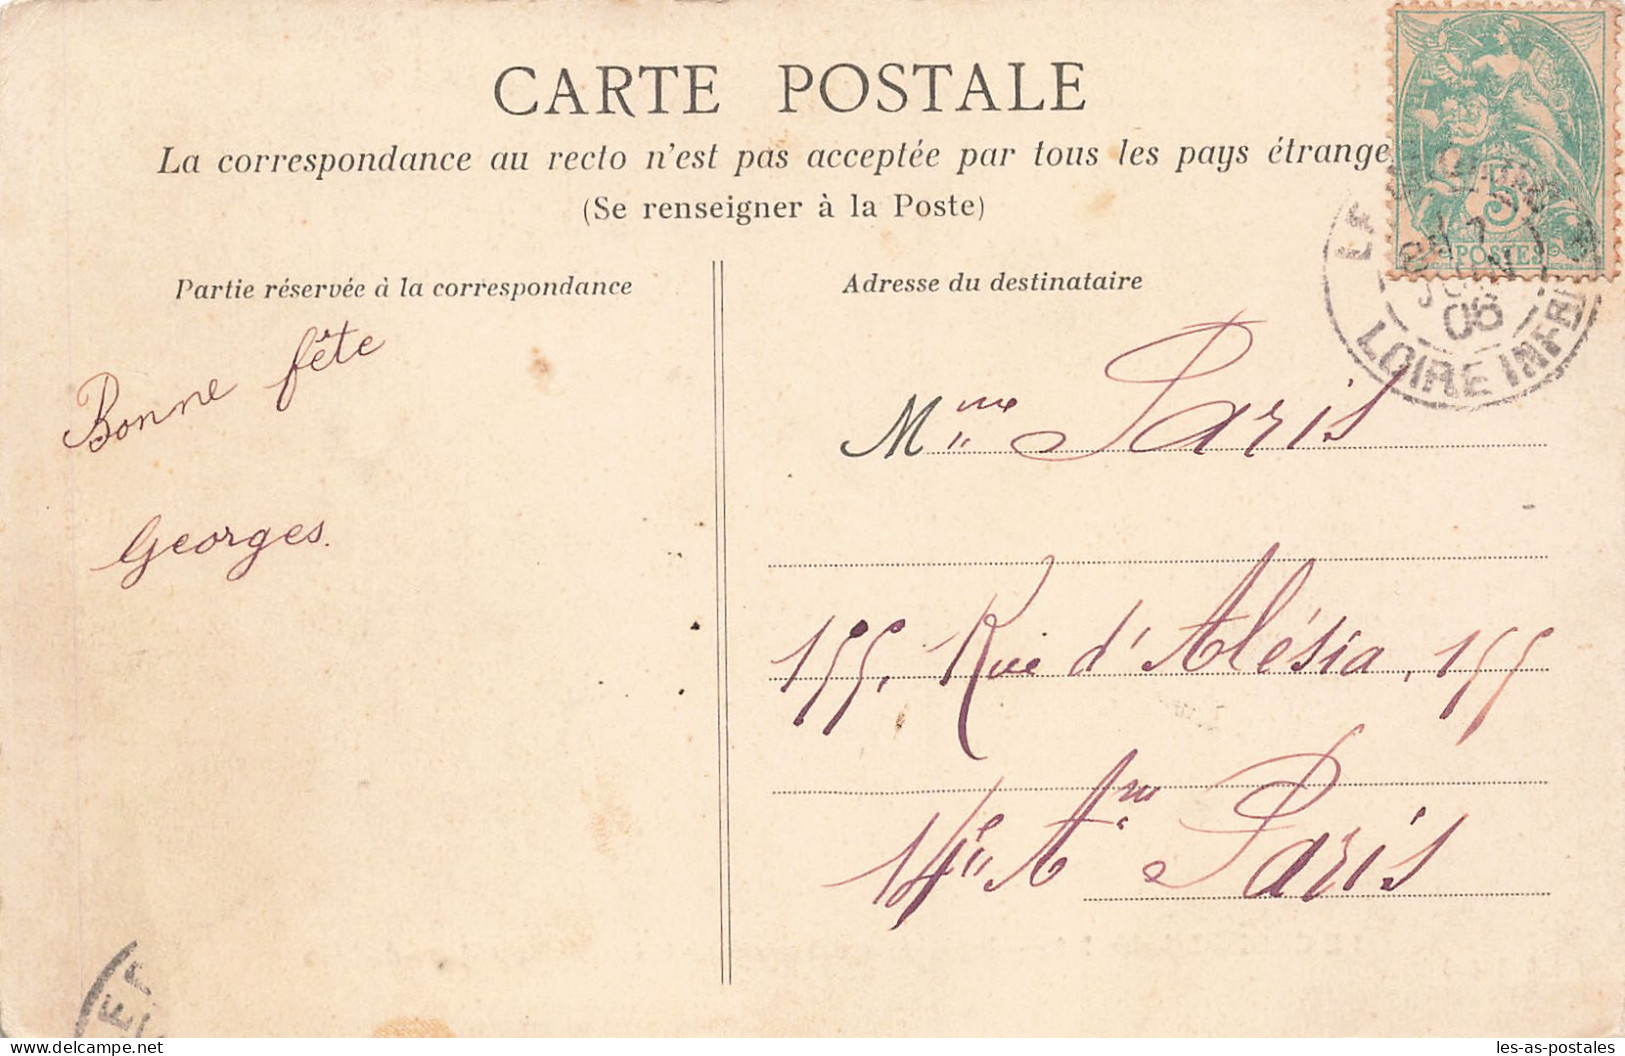 CARTE POSTALE
La correspondance au recto n'est pas acceptée par tous les pays étrange
(Se renseigner à la Poste)
Partie réservée à la correspondance
Adresse du destinataire
Bonne fête
Georges.
Mme Paris
155, Rue d'Alésia, 155
14e Arr Paris
5
POSTES
JUIN
06
LOIRE INFRE
les-as-postales